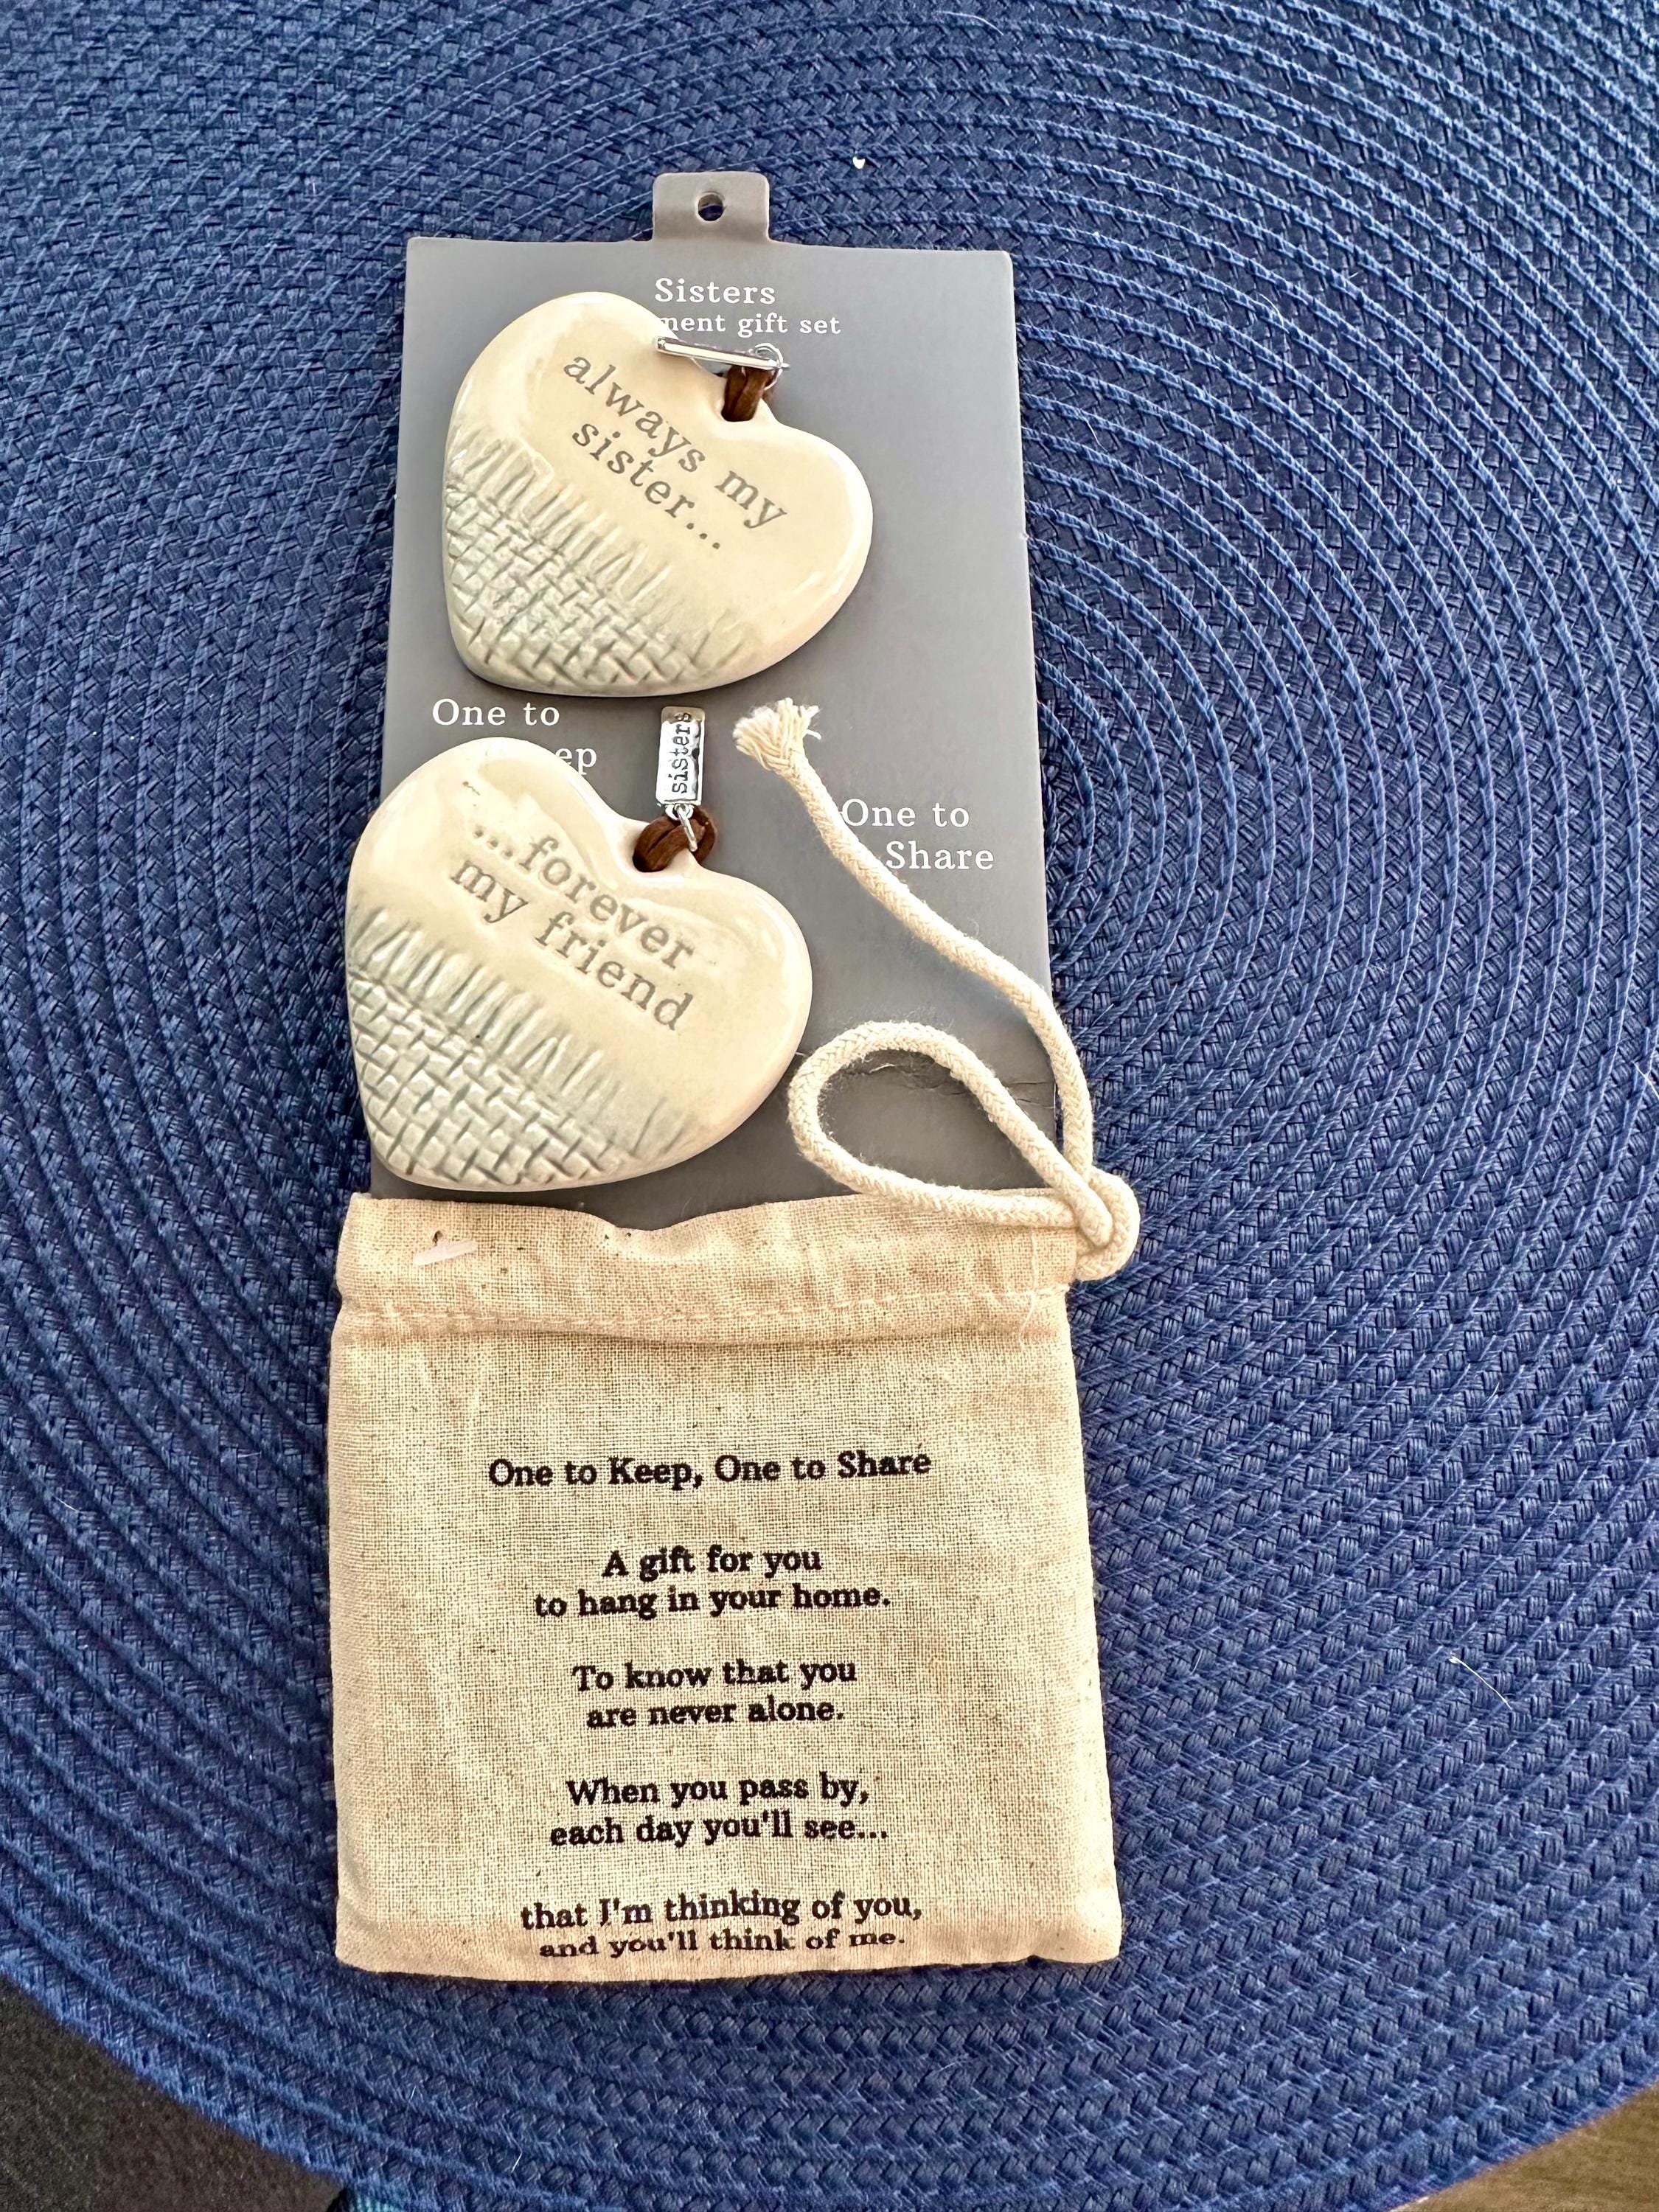 Sisters
gift set
always my
sister...
One to
Sisters
...forever
my friend
One to
Share
One to Keep, One to Share
A gift for you
to hang in your home.
To know that you
are never alone.
When you pass by,
each day you'll see...
that I'm thinking of you,
and you'll think of me.